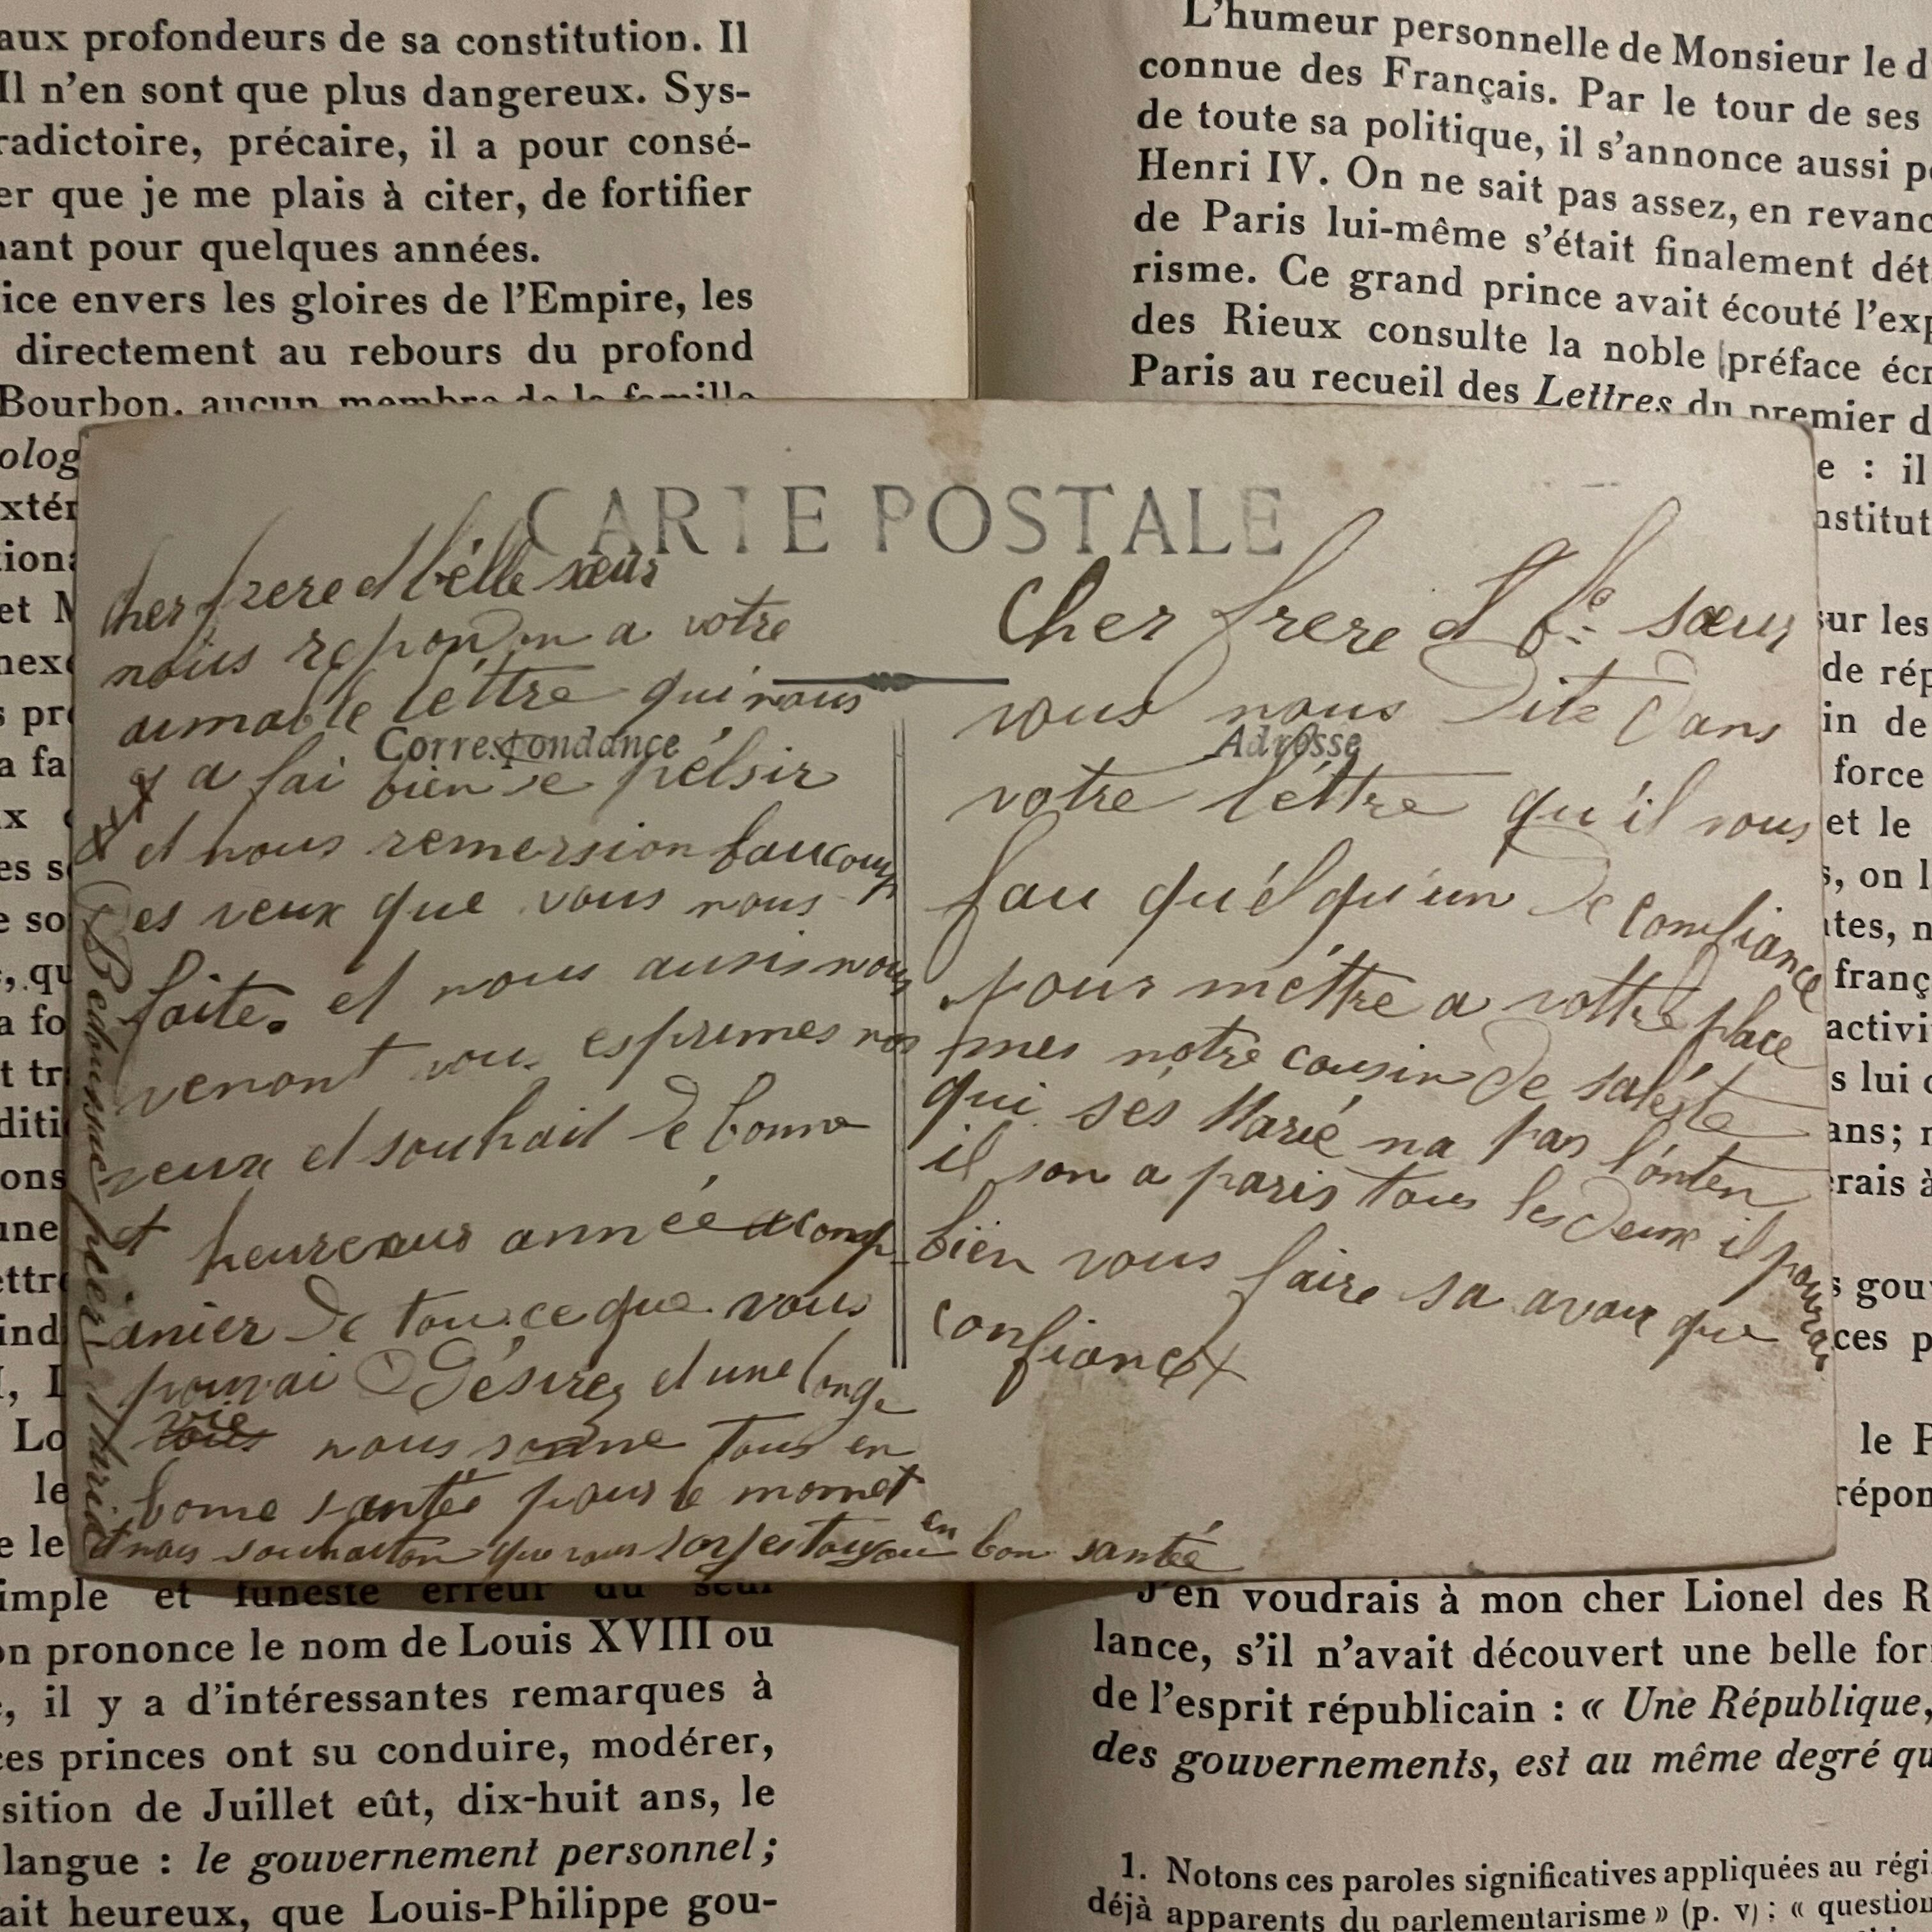 aux profondeurs de sa constitution. Il
Il n'en sont que plus dangereux. Sys-
radictoire, précaire, il a pour consé-
er que je me plais à citer, de fortifier
nant pour quelques années.
ice envers les gloires de l'Empire, les
directement au rebours du profond
Bourbon, aucun membre de la famille
olog
xtér
tion
et M
nex
s pr
a fa
ux
es s
e so
, qu
a fo
t tr
diti
ons
une
ettr
ind
I, L
Lo
le
e le
imple et funeste erreur du seul
on prononce le nom de Louis XVIII ou
, il y a d'intéressantes remarques à
ces princes ont su conduire, modérer,
sition de Juillet eût, dix-huit ans, le
langue : le gouvernement personnel ;
ait heureux, que Louis-Philippe gou-
CARTE POSTALE
Correspondance
cher frere et bélle sœur
nous repondon a votre
aimable léttre qui nous
a fai bien de pélsir
et nous remersion baucoup
des veux que vous nous
faite. et nous ausis nous
venont vous esprimes nos
veux et souhait de bonne
et heureuus année acomp
anier de tou ce que vous
pouvai Désirez et une longe
vie nous somme tous en
bonne santée pour le momet
et nous souhaiton que vous soyes toujour en bon santée
Bedounsac pier Marie
Adresse
Cher frere et b. sœur
vous nous dite dans
votre léttre qu'il vous
fau quélqu'un de comfiance
pour méttre a vottre place
mes notre cousin de
qui sés Marié na pas l'onten
il son a paris tous les deux il pouras
bien vous faire sa avau que
confiance
L'humeur personnelle de Monsieur le d
connue des Français. Par le tour de ses
de toute sa politique, il s'annonce aussi p
Henri IV. On ne sait pas assez, en revanc
de Paris lui-même s'était finalement dét
risme. Ce grand prince avait écouté l'exp
des Rieux consulte la noble préface écr
Paris au recueil des Lettres du premier d
e : il
nstitut
sur les
de rép
in de
force
et le
s, on l
ites, n
franç
activi
s lui
ans; n
rais à
s gou
ces p
le P
répon
J'en voudrais à mon cher Lionel des R
lance, s'il n'avait découvert une belle for
de l'esprit républicain : « Une République,
des gouvernements, est au même degré qu
1. Notons ces paroles significatives appliquées au régi
déjà apparents du parlementarisme » (p. v) : « question